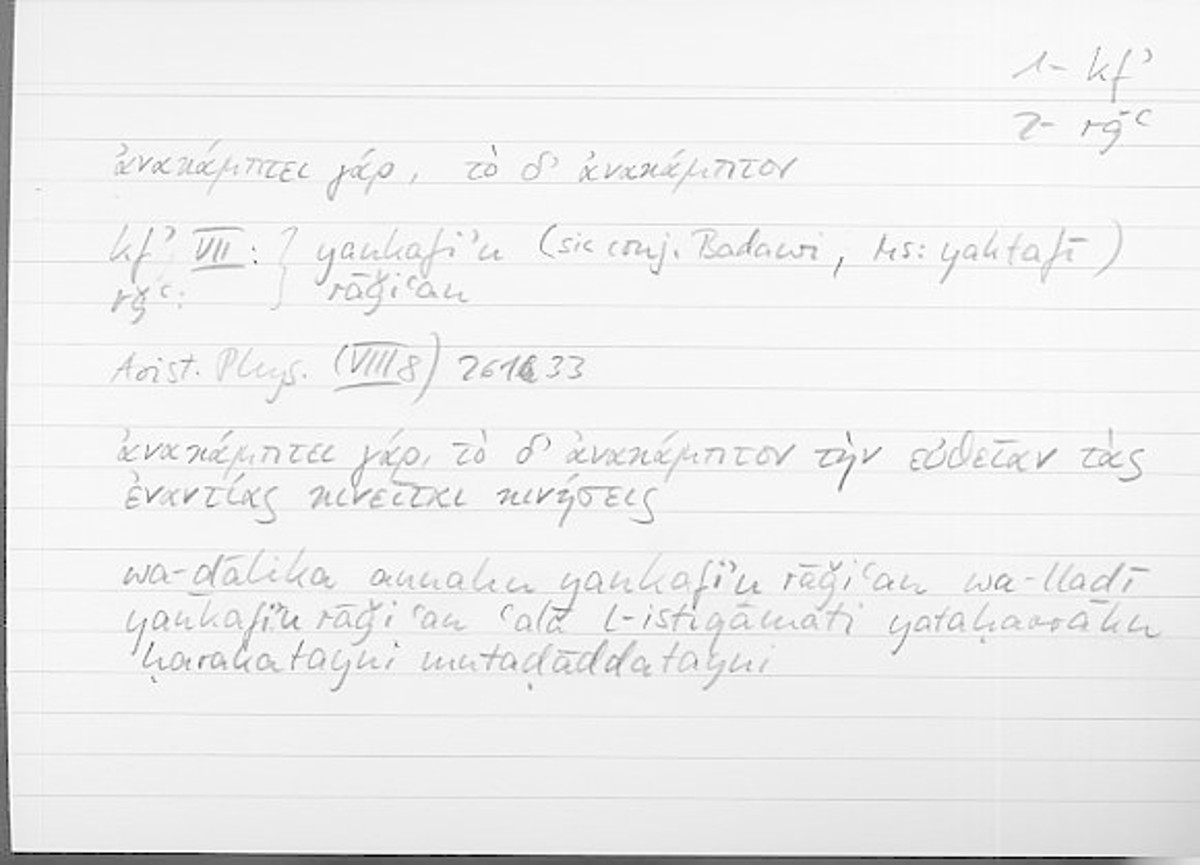 1- kfʾ
2- rǧʿ
ἀνακάμπτει γάρ, τὸ δ’ ἀνακάμπτον
kfʾ VII : } yankafiʾu (sic conj. Badawi, Ms: yaktafī)
rǧʿ : rāǧiʿan
Arist. Phys. (VIII 8) 261 33
ἀνακάμπτει γάρ, τὸ δ’ ἀνακάμπτον τὴν εὐθεῖαν τὰς
ἐναντίας κινεῖται κινήσεις
wa-ḏālika annahu yankafiʾu rāǧiʿan wa-llaḏī
yankafiʾu rāǧiʿan ʿalā l-istiqāmati yataḥarraku
ḥarakatayni mutaḍāddatayni